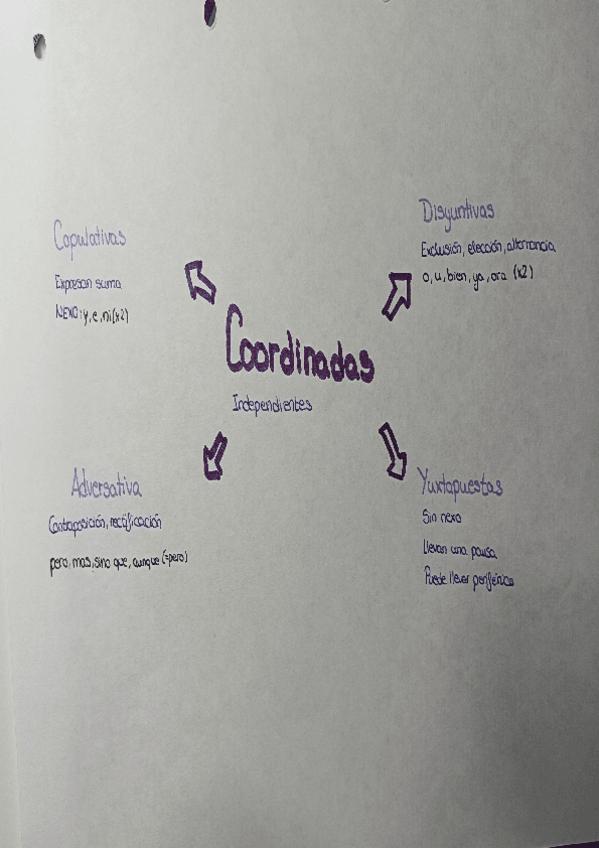 Copulativas
Expresan suma
NEXO: y, e, ni (x2)
Disyuntivas
Exclusión, elección, alternancia
o, u, bien, ya, ora (x2)
Coordinadas
Independientes
Adversativa
Contraposición, rectificación
pero, mas, sino que, aunque (=pero)
Yuxtapuestas
Sin nexo
Llevan una pausa
Puede llevar periférico